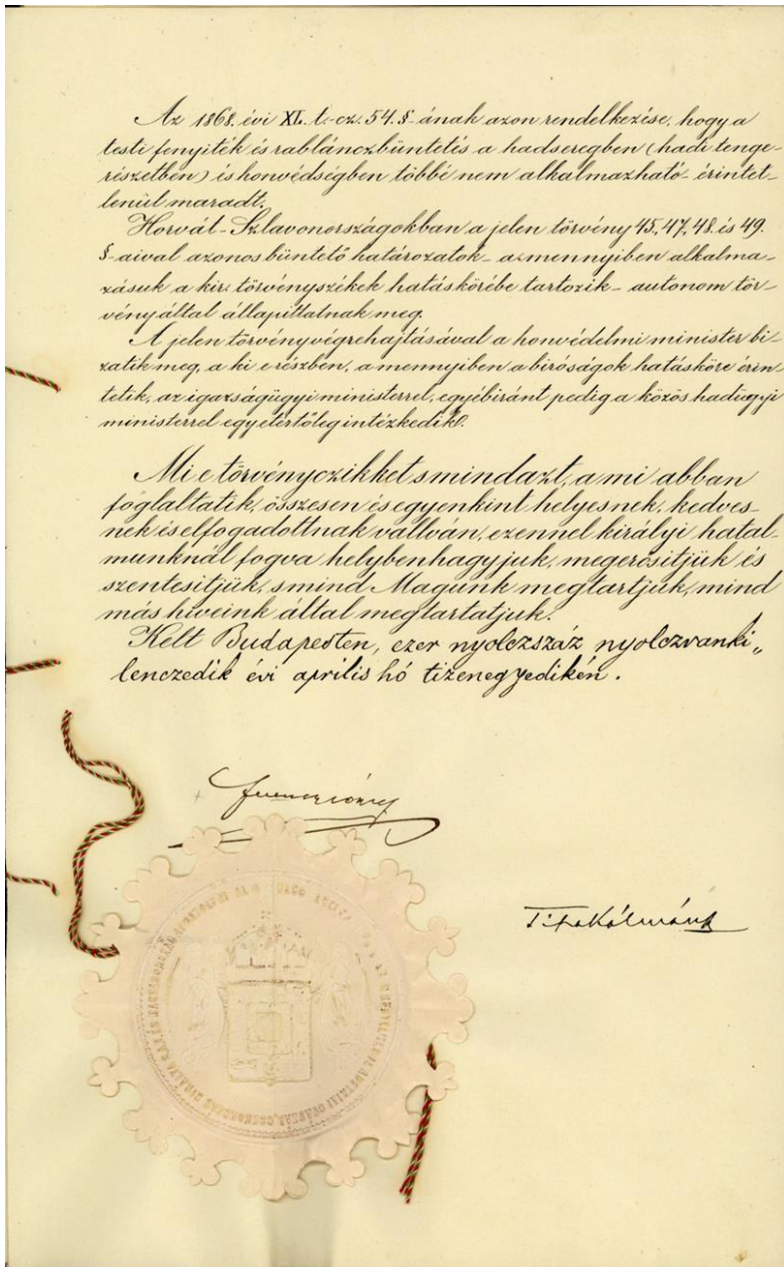 Az 1868. évi XL. t.-cz. 54. §-ának azon rendelkezése, hogy a
testi fenyiték és rablánczbüntetés a hadseregben (hadi tenge-
részetben) és honvédségben többé nem alkalmazható - érintet-
lenül maradt.
Horvát-Szlavonországokban a jelen törvény 45, 47, 48 és 49.
§-aival azonos büntető határozatok - a mennyiben alkalma-
zásuk a kir. törvényszékek hatáskörébe tartozik - autonom tör-
vény által állapittatnak meg.
A jelen törvény végrehajtásával a honvédelmi minister bi-
zatik meg, a ki e részben, a mennyiben a biróságok hatásköre érin-
tetik, az igazságügyi ministerrel, egyébiránt pedig a közös hadügyi
ministerrel egyetértőleg intézkedik.
Mi e törvényczikket s mindazt, a mi abban
foglaltatik, összesen és egyenkint helyesnek, kedves-
nek és elfogadottnak vallván, ezennel királyi hatal-
munknál fogva helybenhagyjuk, megerősitjük és
szentesitjük, s mind Magunk megtartjuk, mind
más hiveink által megtartatjuk.
Kelt Budapesten, ezer nyolczszáz nyolczvanki„
lenczedik évi április hó tizenegyedikén.
Ferencz József
Tisza Kálmán